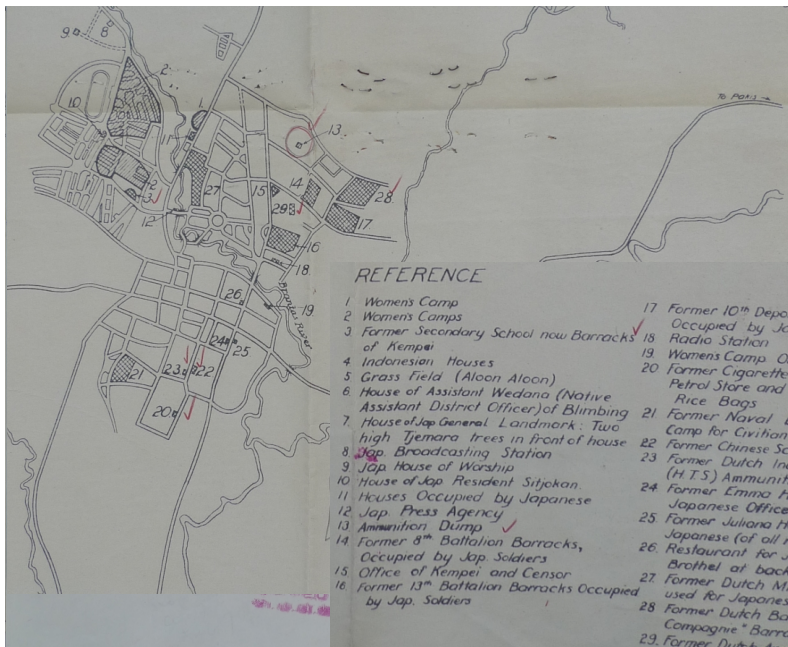 9
8
2
10
1
11
13
To Poris
2
27
15
14
28
3
29
17
12
16
18
26
19
Brantas River
24
25
21
23
22
20
REFERENCE
1 Women's Camp
2 Women's Camps
3 Former Secondary School now Barracks
of Kempei
4 Indonesian Houses
5 Grass Field (Aloon Aloon)
6 House of Assistant Wedana (Native
Assistant District Officer) of Blimbing
7 House of Jap General Landmark: Two
high Tjemara trees in front of house
8 Jap. Broadcasting Station
9 Jap. House of Worship
10 House of Jap Resident Sitjokan.
11 Houses Occupied by Japanese
12 Jap. Press Agency
13 Ammunition Dump
14 Former 8th Battalion Barracks,
Occupied by Jap. Soldiers
15 Office of Kempei and Censor
16 Former 13th Battalion Barracks Occupied
by Jap. Soldiers
17 Former 10th Depo
Occupied by Ja
18 Radio Station
19. Women's Camp O
20 Former Cigarette
Petrol Store and
Rice Bags
21 Former Naval
Camp for Civilian
22 Former Chinese Sc
23 Former Dutch In
(H.T.S) Ammunit
24 Former Emma H
Japanese Office
25. Former Juliana H
Japanese (of all
26. Restaurant for J
Brothel at back
27. Former Dutch M
used for Japanes
28 Former Dutch Ba
Compagnie" Barra
29. Former Dutch